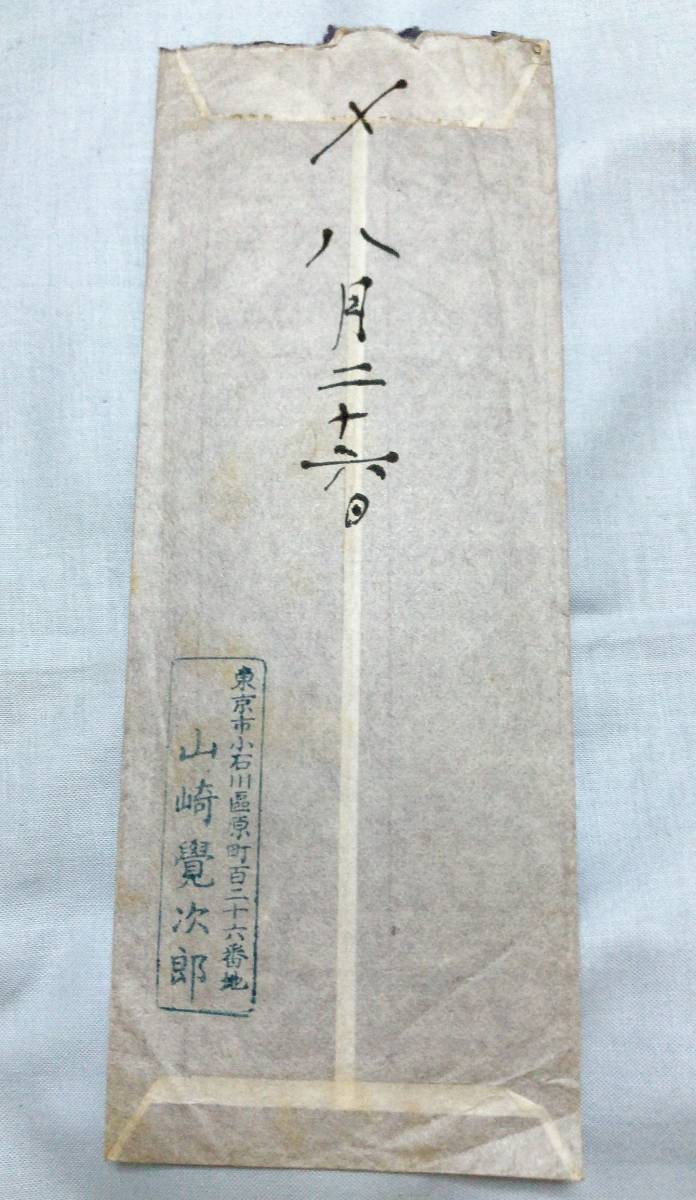 〆
八月二十六日
東京市小石川區原町百二十六番地
山崎覺次郎